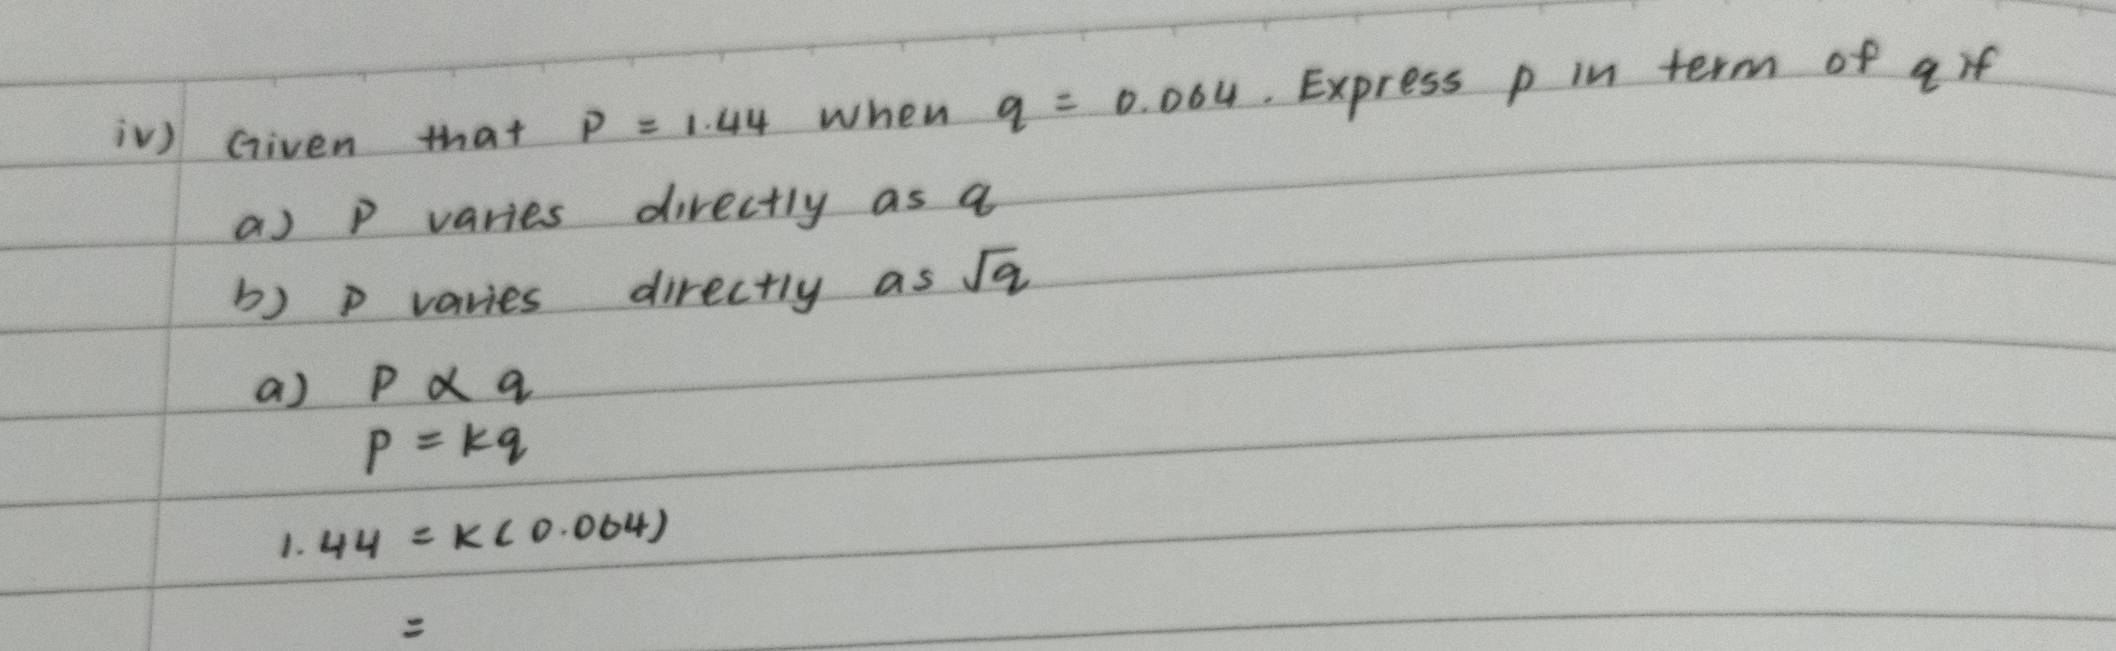 iv) Given that P = 1.44 when q = 0.064. Express p in term of q if
a) P varies directly as q
b) P varies directly as √q
a) P ∝ q
P = kq
1.44 = k(0.064)
=